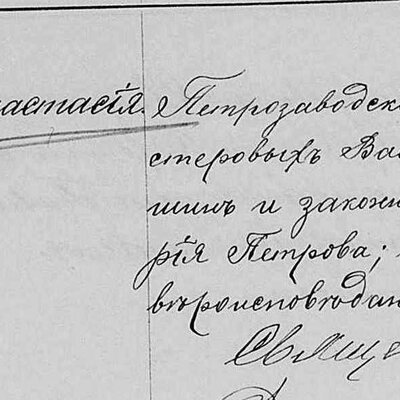 астасія. Петрозаводск
стеровыхъ Ва
шинъ и законн
рія Петрова;
вѣроисповѣдан
Свяще